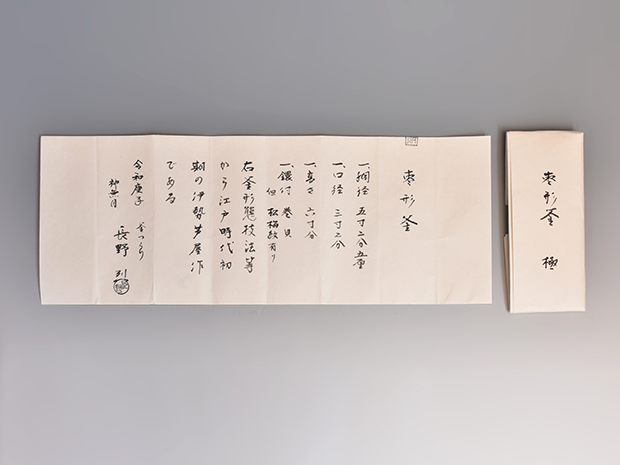 棗形釜
一、胴径 五寸二分五厘
一、口径 三寸二分
一、高さ 六寸分
一、鐶付 巻貝
但 松梅紋有り
右釜形態技法等
から江戸時代初
期の伊勢芦屋作
である
令和庚子
神無月
釜つくり
長野 烈
棗形釜 極